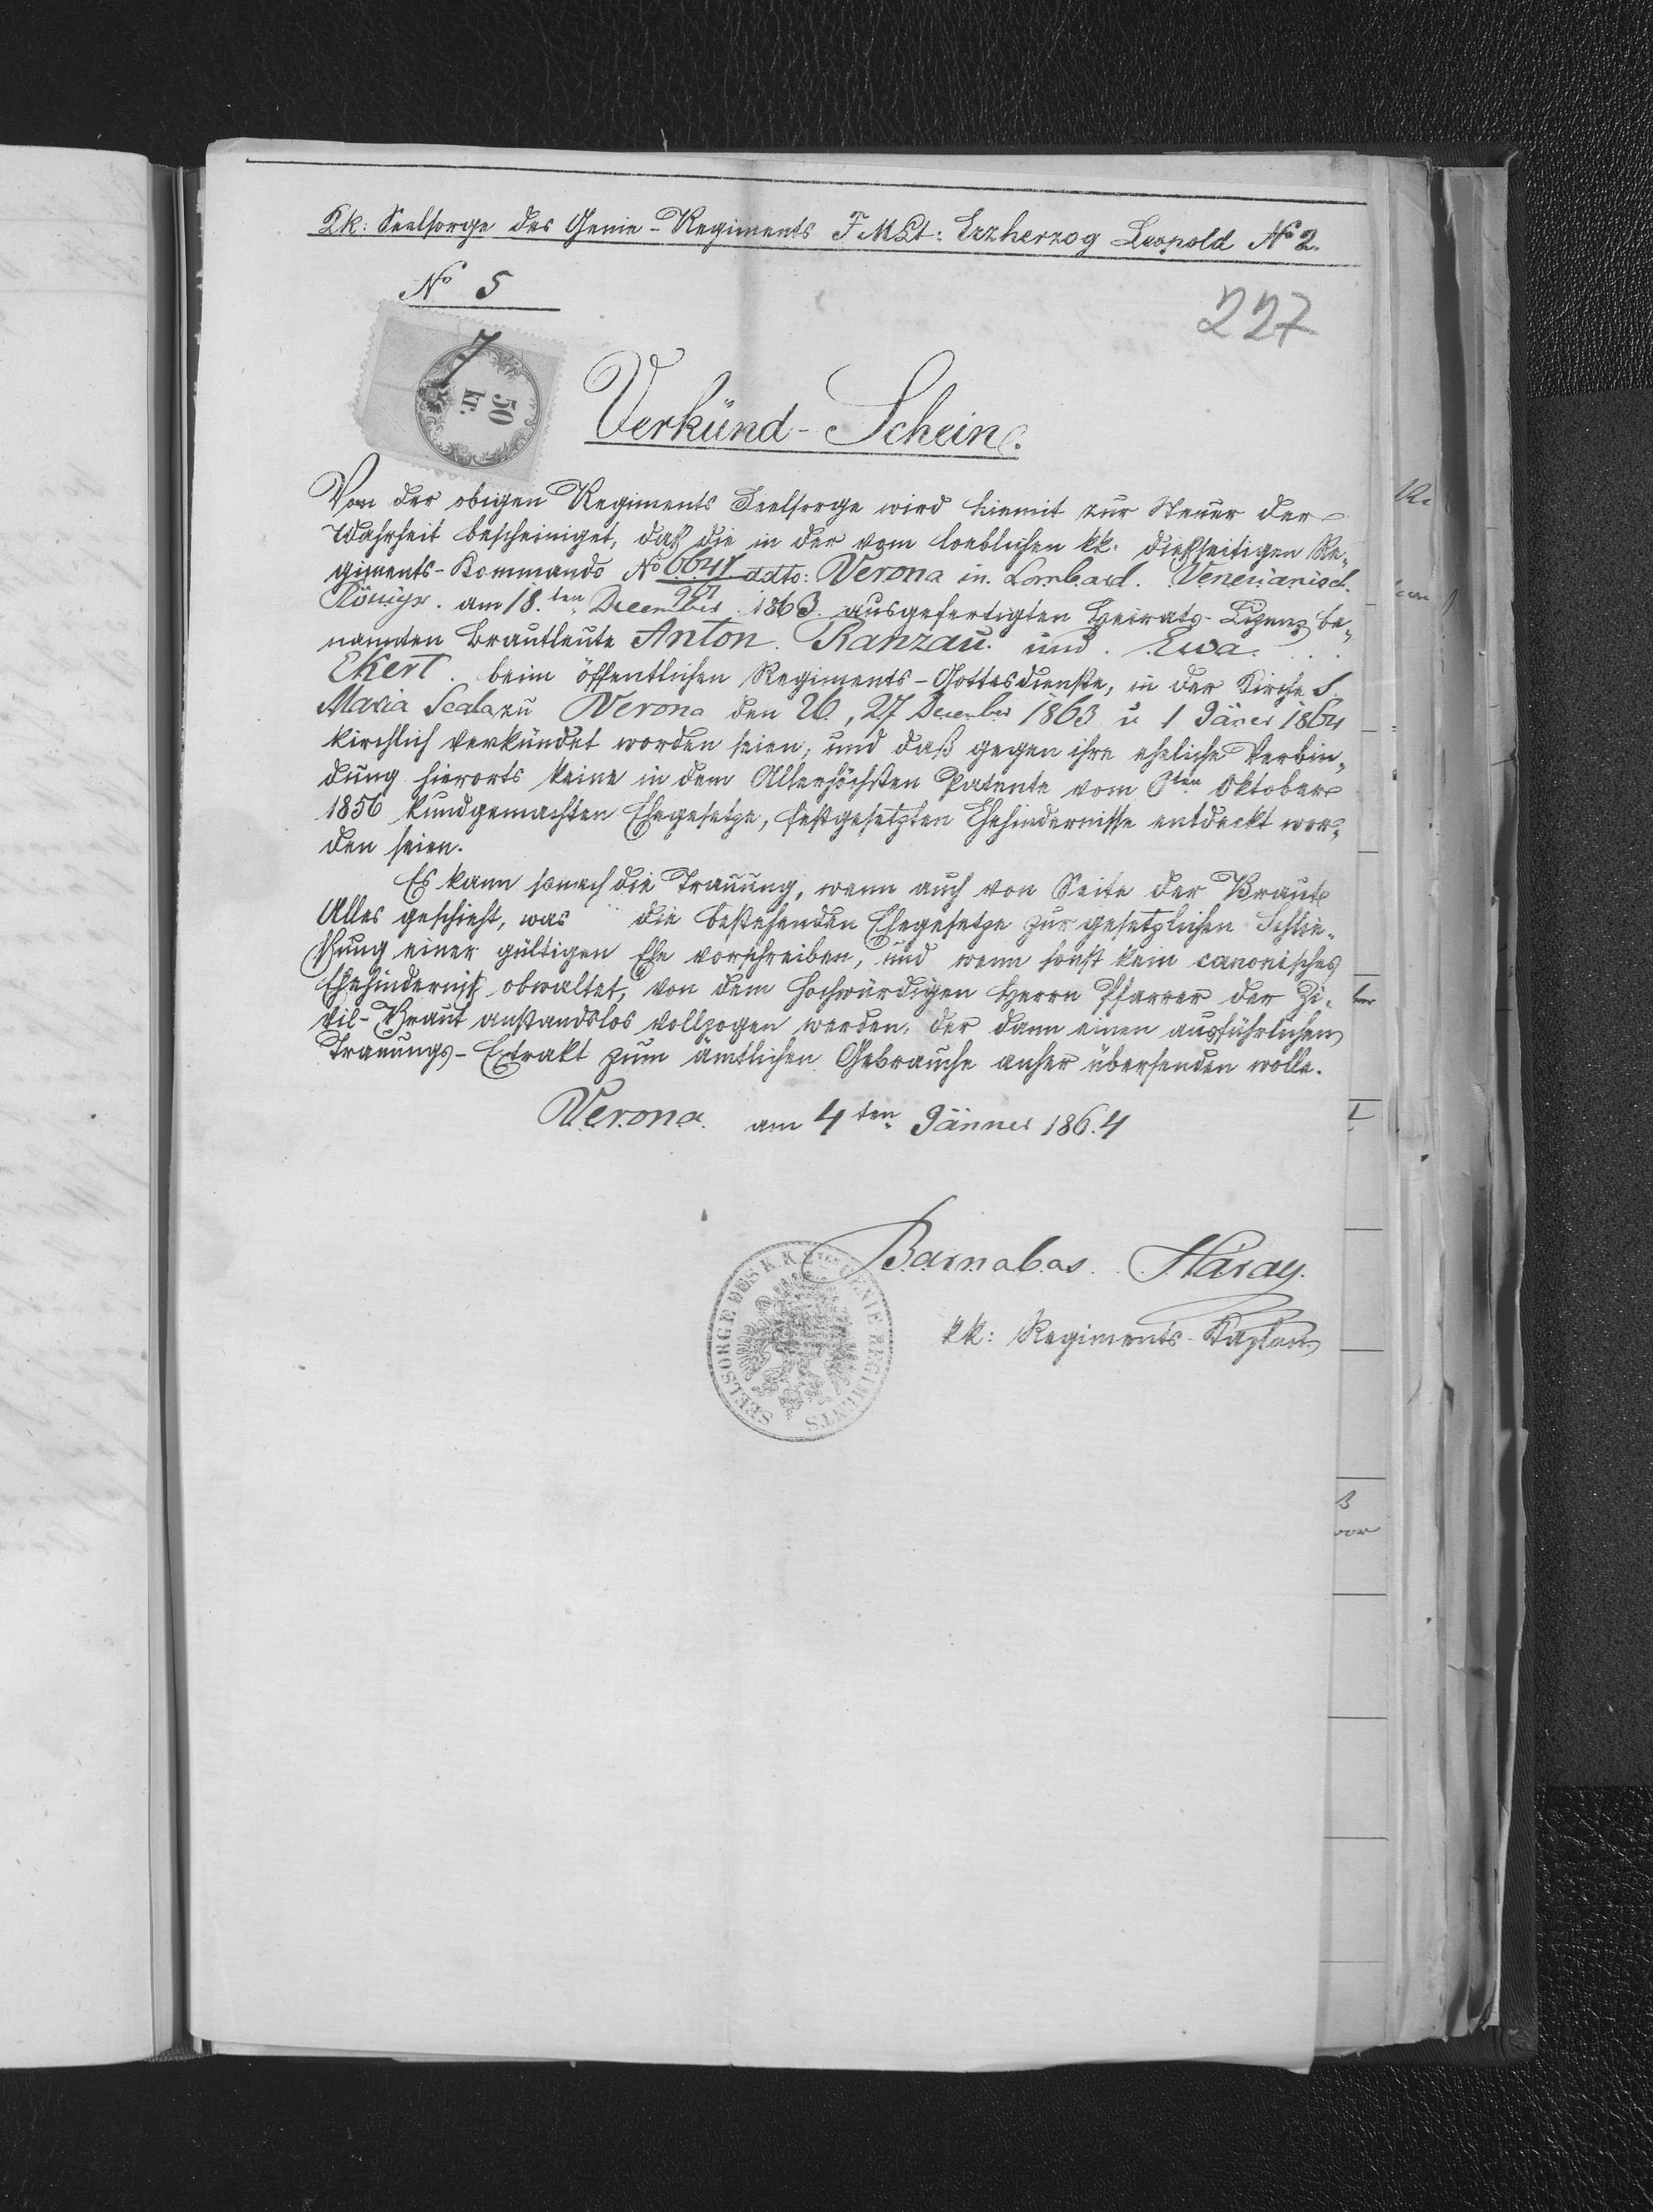 Kk: Seelsorge des Genie-Regiments F M Lt: Erzherzog Leopold No 2.
No 5
227
7
50
kr.
Verkünd-Schein.
Von der obigen Regiments Seelsorge wird hiemit zur Steuer der
Wahrheit bescheiniget, daß die in der vom loeblichen kk. dießseitigen Re-
giments-Kommando No 6641 ddto: Verona in Lombard. Venetianisch.
Königr. am 18.ten December 1863 ausgefertigten Heirats-Lizenz be-
nannten Brautleute Anton Ranzau und Ewa
Ekert beim öffentlichen Regiments-Gottesdienste, in der Kirche S.
Maria Scala zu Verona den 26., 27 December 1863 u 1 Jäner 1864
kirchlich verkündet worden seien, und daß gegen ihre eheliche Verbin-
dung hierorts keine in dem Allerhöchsten Patente vom 8ten Oktober
1856 kundgemachten Ehegesetze, festgesetzten Ehehindernisse entdeckt wor-
den seien.
Es kann sonach die Trauung, wenn auch von Seite der Braut
Alles geschieht, was die bestehenden Ehegesetze zur gesetzlichen Schlie-
ßung einer gültigen Ehe vorschreiben, und wenn sonst kein canonisches
Ehehinderniß obwaltet, von dem Hochwürdigen Herrn Pfarrer der Zi-
vil-Braut anstandslos vollzogen werden, der dann einen ausführlichen
Trauungs-Extrakt zum ämtlichen Gebrauche anher übersenden wolle.
Verona am 4ten Jänner 1864
Barnabas Háray.
kk: Regiments-Kaplan
SEELSORGE DES K.K. 2ten GENIE REGIMENTS